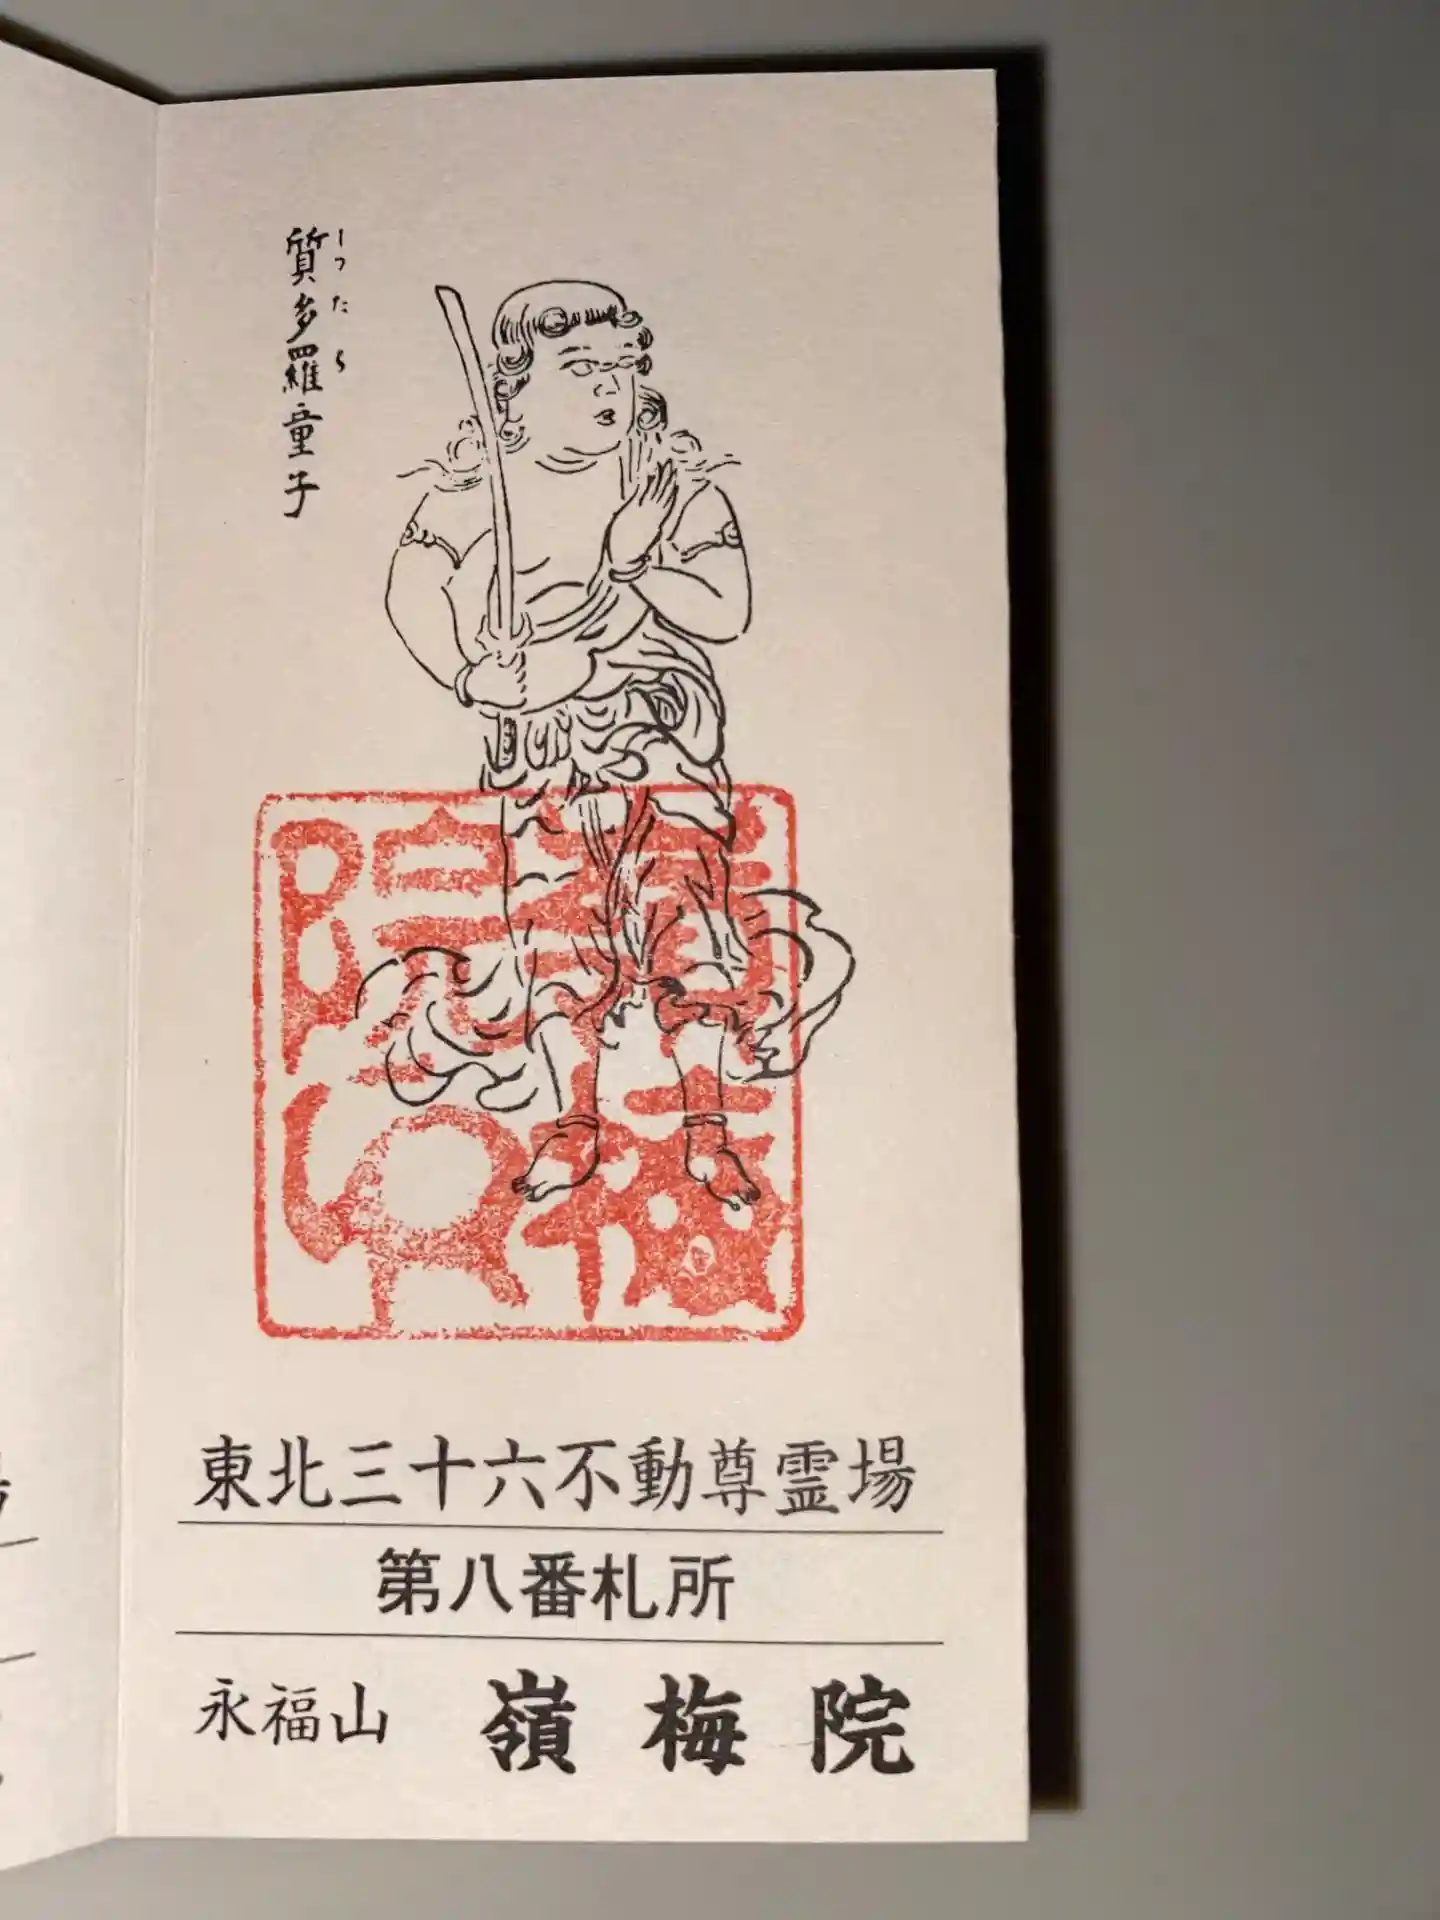 質多羅童子
しつたら
東北三十六不動尊霊場
第八番札所
永福山 嶺梅院